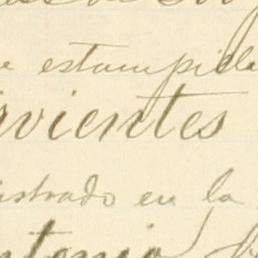 e estampilla
rvientes
istrado en la
ntonio